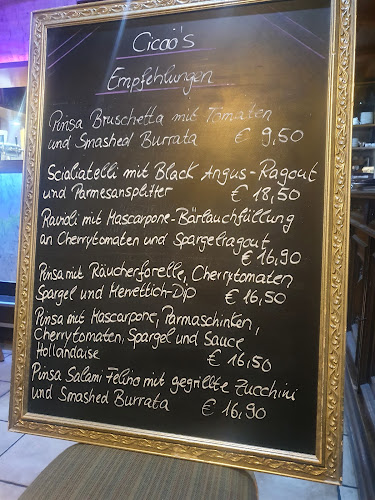 Ciao's
Empfehlungen
Pinsa Bruschetta mit Tomaten
und Smashed Burrata € 9,50
Scialiatelli mit Black Angus-Ragout
und Parmesansplitter € 18,50
Ravioli mit Mascarpone-Bärlauchfüllung
an Cherrytomaten und Spargelragout
€ 16,90
Pinsa mit Räucherforelle, Cherrytomaten
Spargel und Merrettich-Dip € 16,50
Pinsa mit Mascarpone, Parmaschinken,
Cherrytomaten, Spargel und Sauce
Hollandaise € 16,50
Pinsa Salami Felino mit gegrillte Zucchini
und Smashed Burrata € 16,90